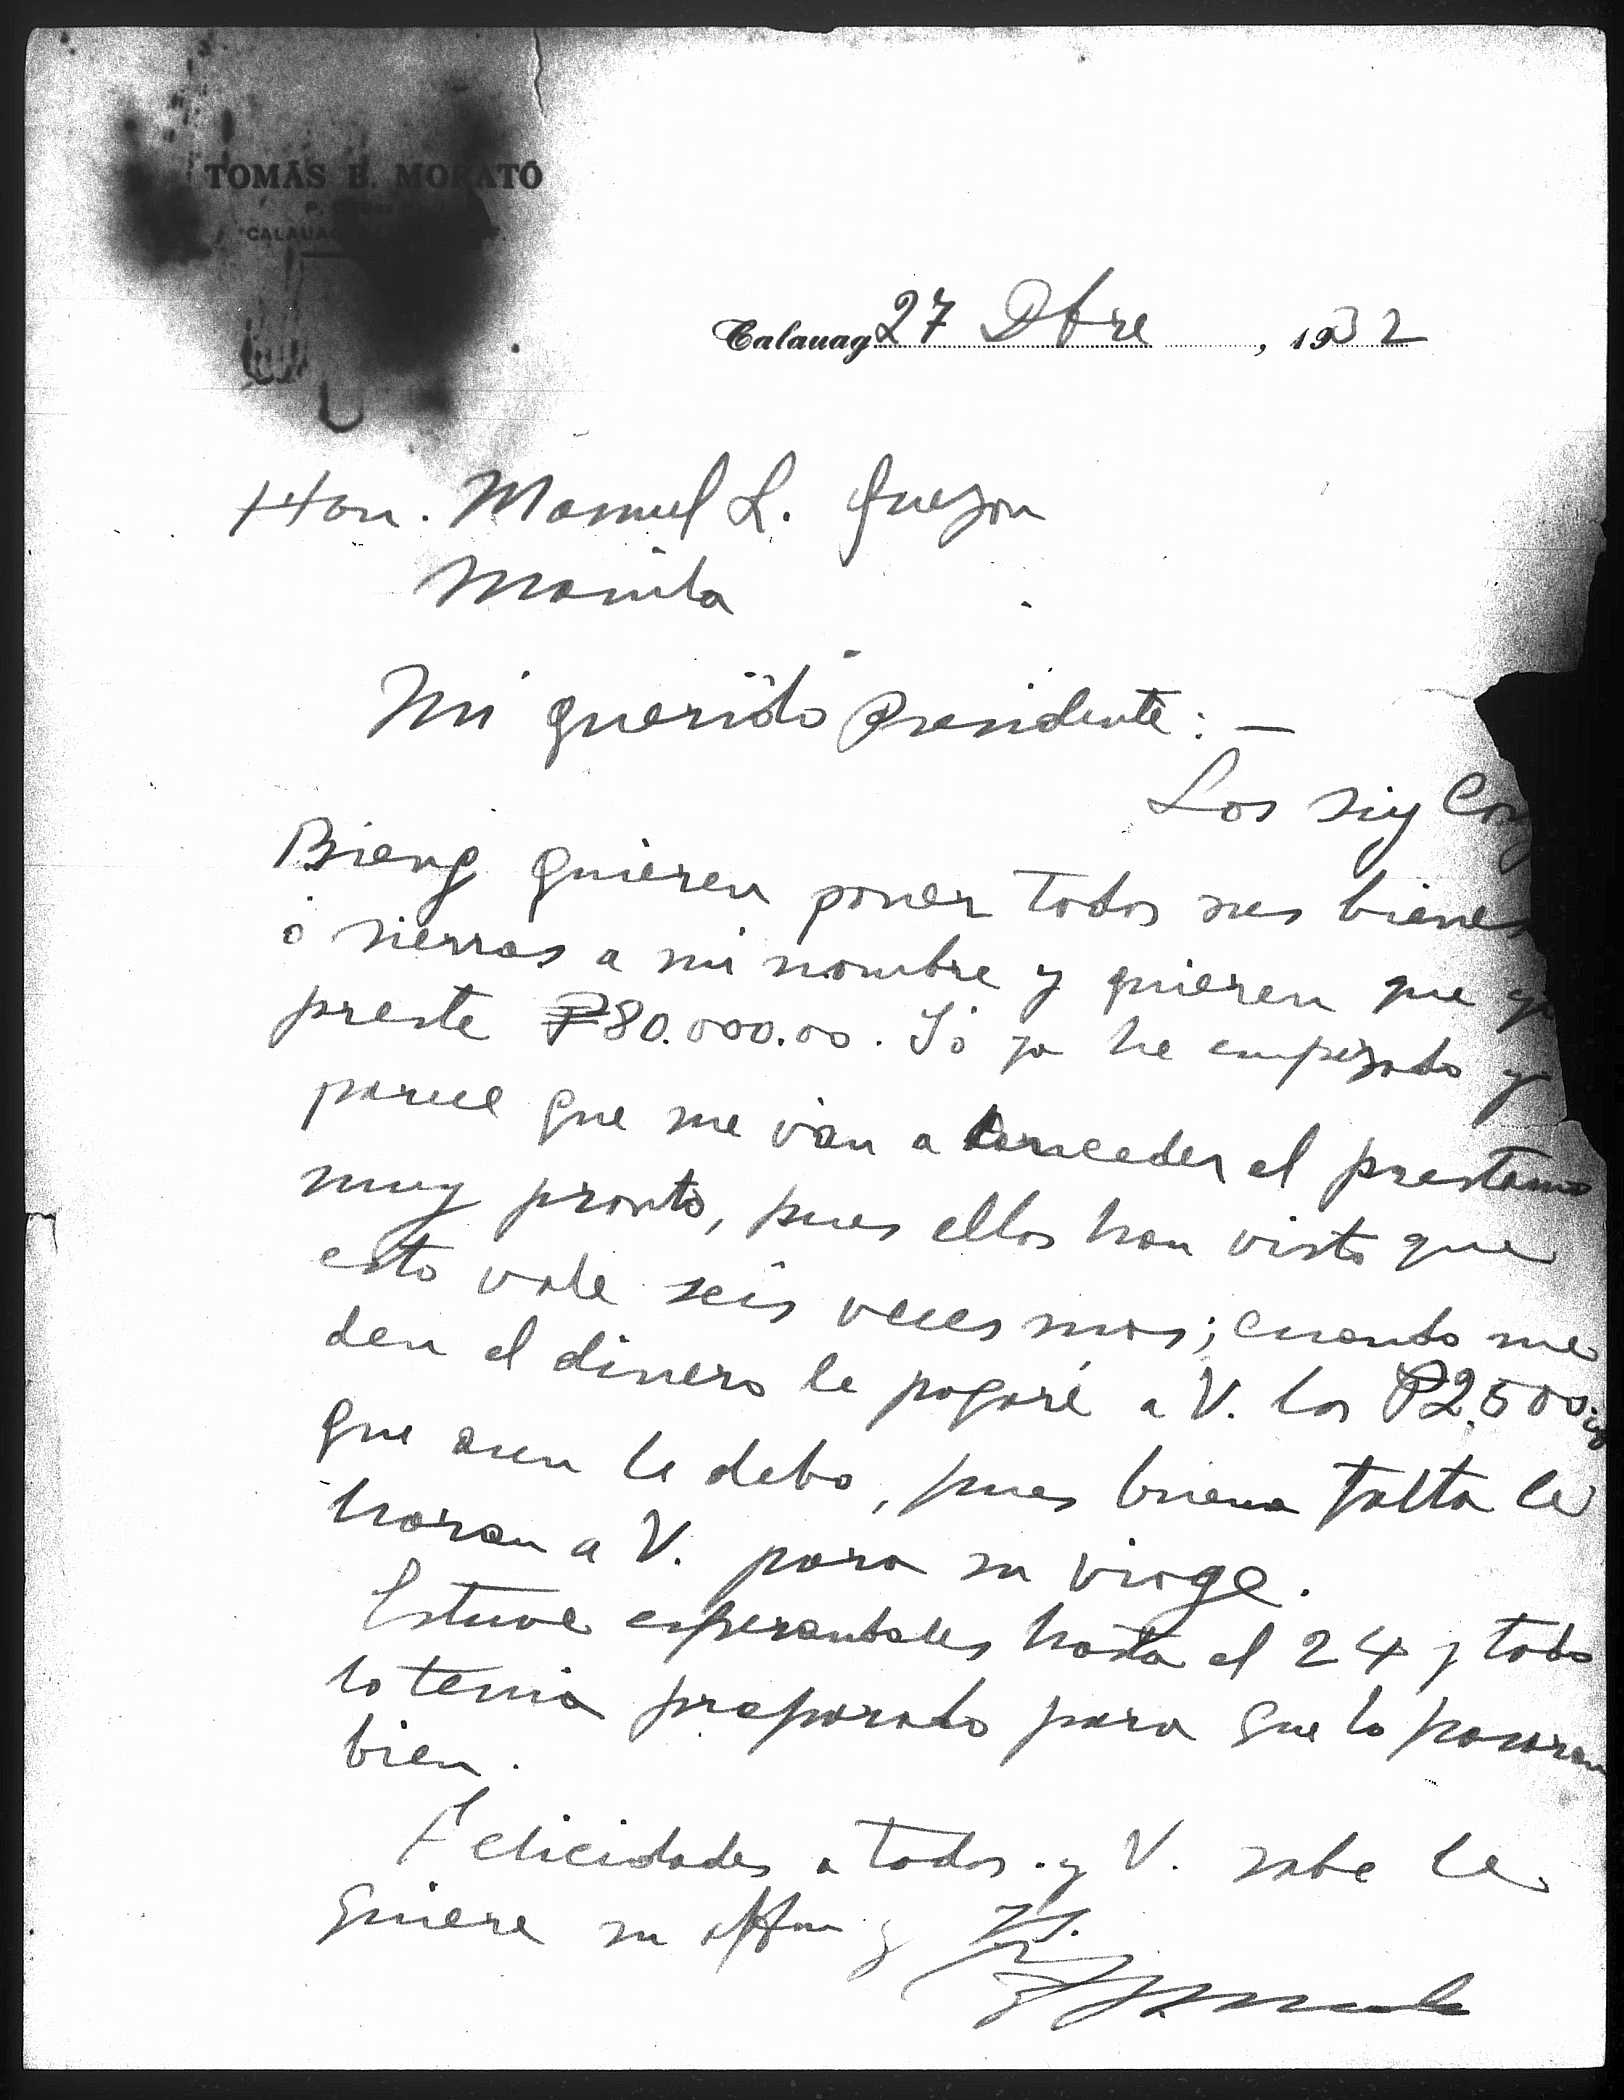 TOMÁS B. MORATÓ
CALAUAG
Calauag 27 Dbre , 1932
Hon. Manuel L. Quezon
Manila
Mi querido Presidente: —
Los Siy Cong
Bieng quieren poner todos sus bienes
ó sierras a mi nombre y quieren que yo
preste ₱80.000.00. Yó ya he empezado y
parece que me ván a conceder el prestamo
muy pronto, pues ellos han visto que
esto vale seis veces mas; cuando me
den el dinero le pagaré a V. los ₱2.500
que aun le debo, pues buena falta le
haran a V. para su viage.
Estuve esperandoles hasta el 24 y todo
lo tenia preparado para que lo pasaran
bien.
Felicidades a todos y V. sabe le
quiere su affmo y